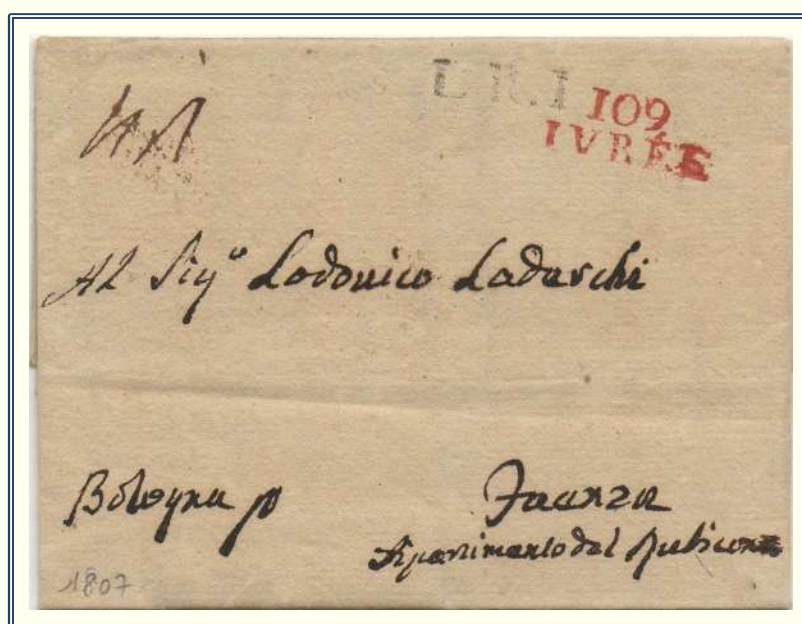 L.R.I
109
IVRÉE
Al Sigº Lodovico Laderchi
Bologna p
Faenza
Dipartimento del Rubicone
1807